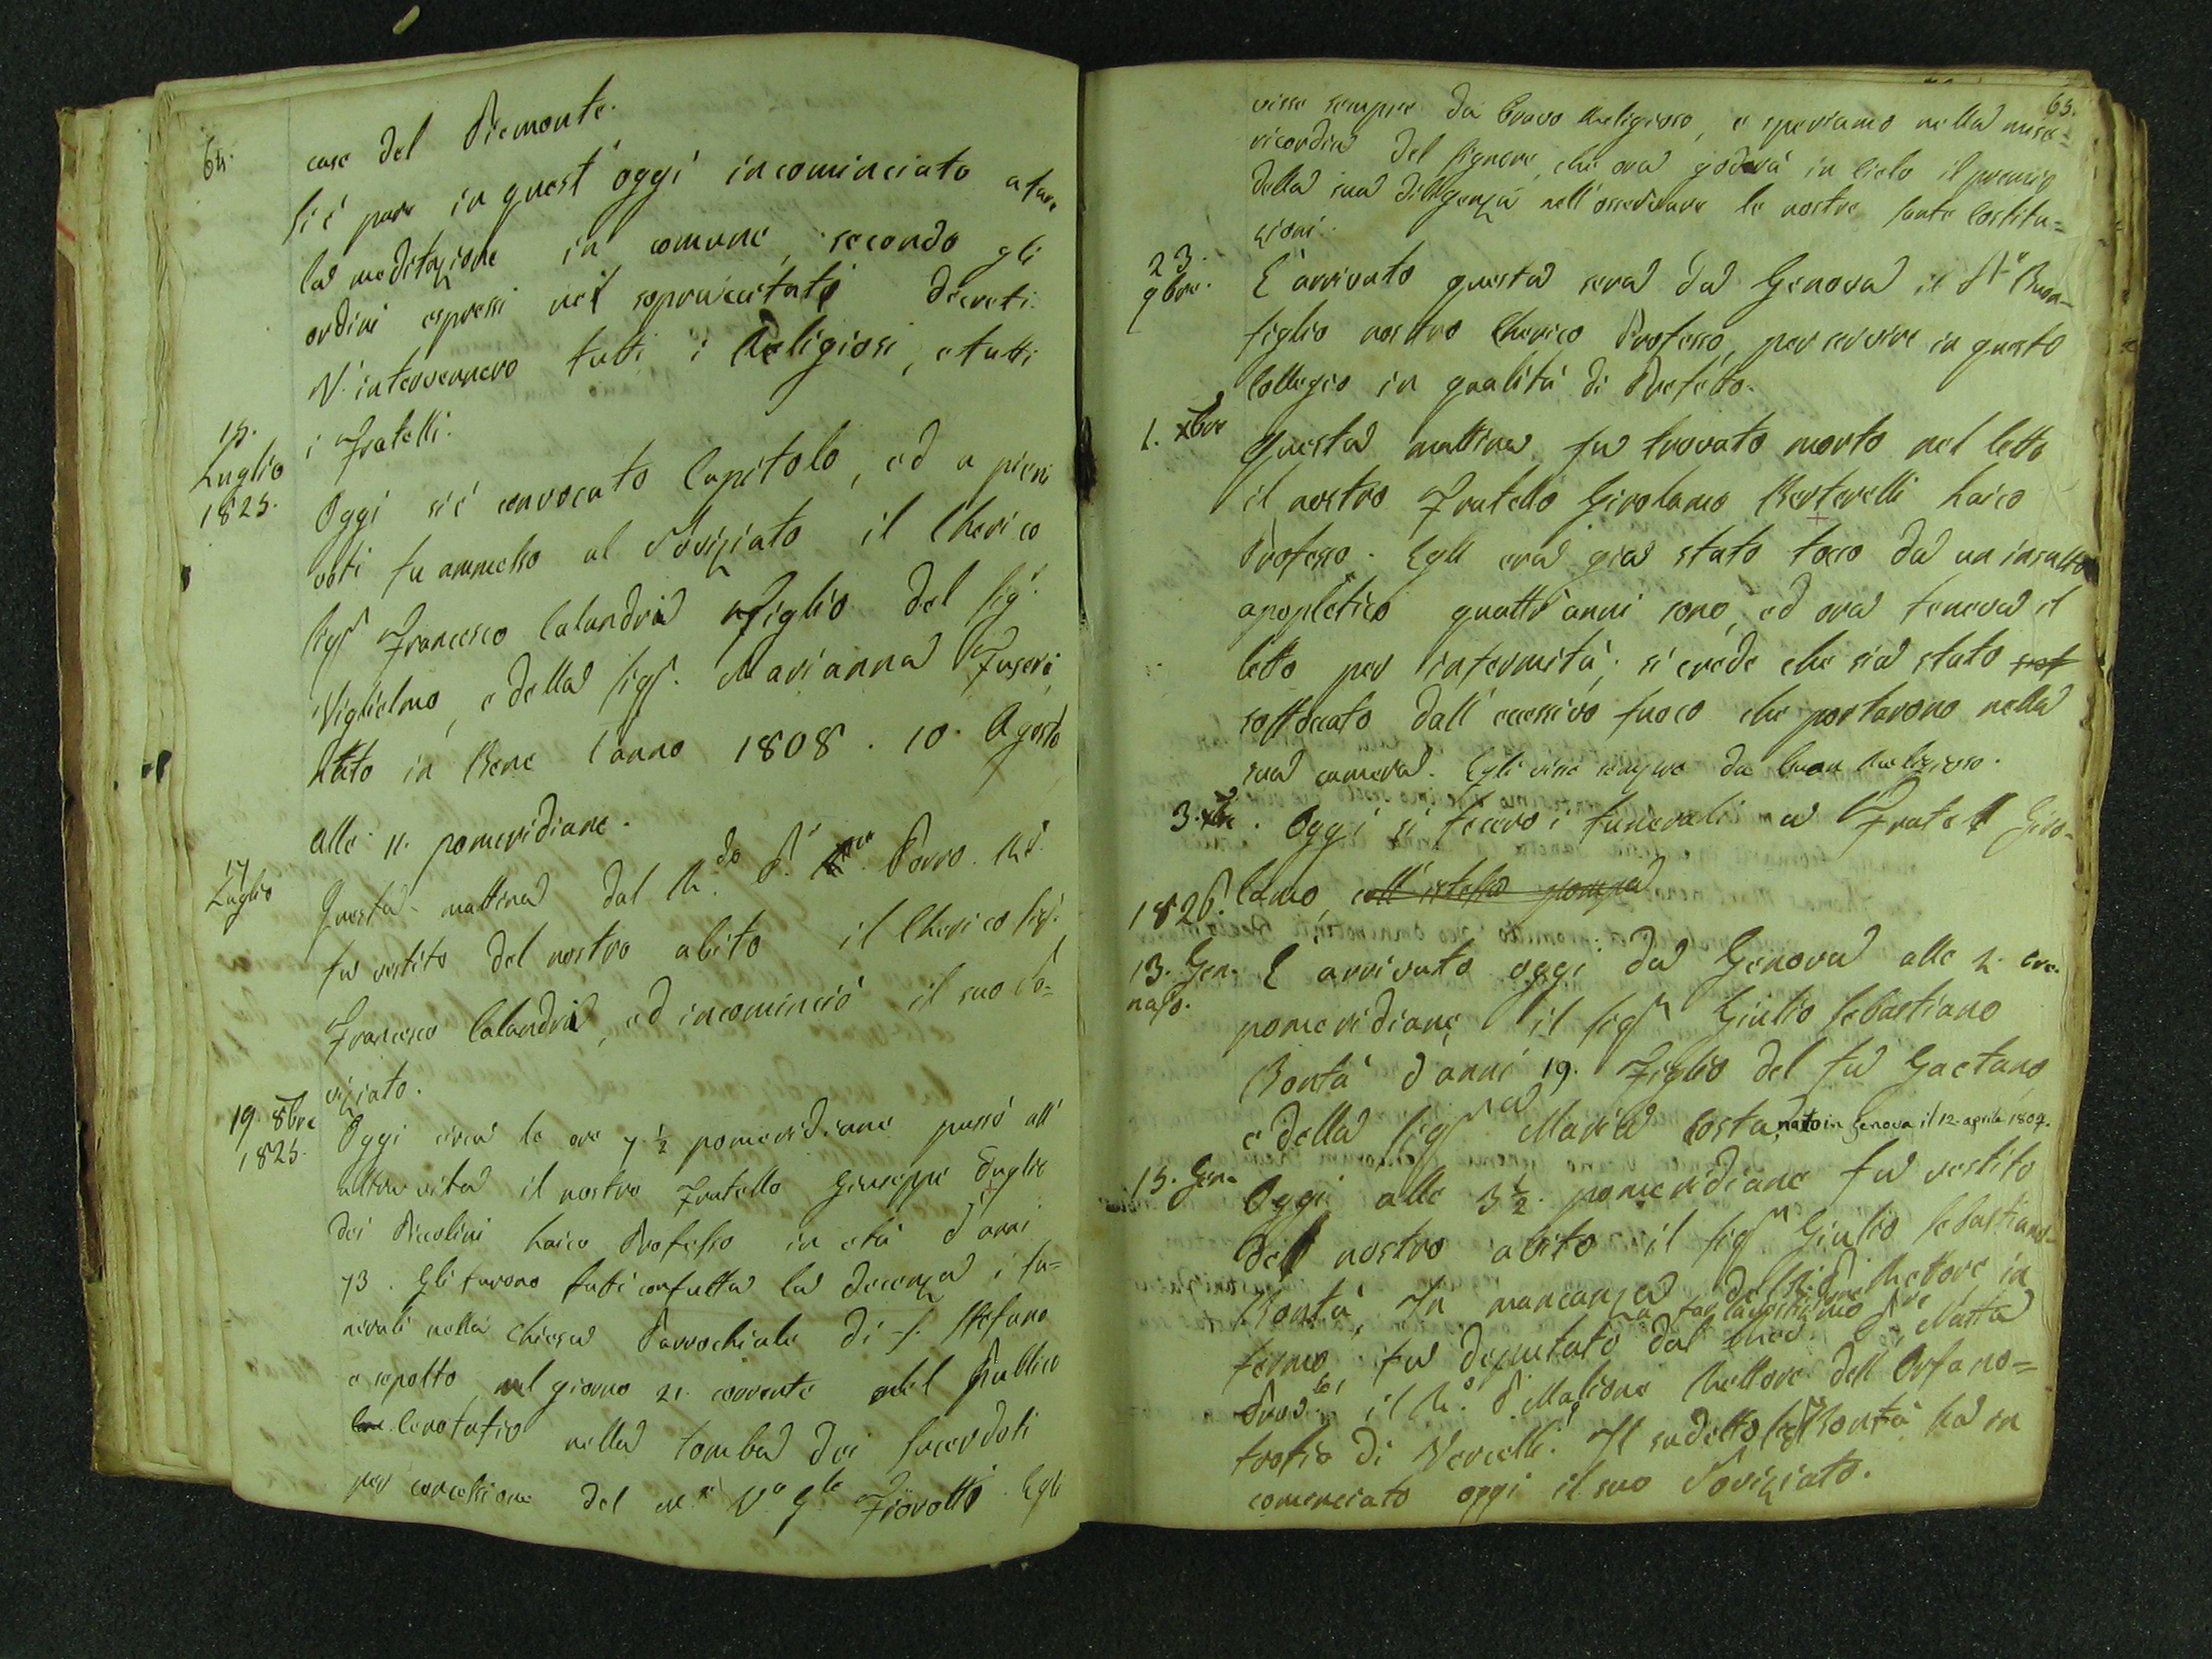 64.
case del Piemonte.
Si è pure in quest'oggi incominciato a fare
la meditazione in comune, secondo gli
ordini espressi nei sopraccitati decreti.
V'intervennero tutti i Religiosi, e tutti
i Fratelli.
15.
Luglio
1825.
Oggi si è convocato Capitolo, ed a pieni
voti fu ammesso al Noviziato il Cherico
Sig.r Francesco Calandri Figlio del Sig.r
Viglielmo, e della Sig.ra Marianna Fuseri,
Nato in Bene l'anno 1808. 10. Agosto
alle 11. pomeridiane.
17
Luglio
Questa mattina dal R.do P. Porro
fu vestito del nostro abito il Cherico Sig.r
Francesco Calandri, ed incominciò il suo No=
viziato.
19. 8bre
1825.
Oggi circa le ore 7 ½ pomeridiane passò all'
altra vita il nostro Fratello Giuseppe
dei Piccolini Laico Professo in età d'anni
73. Gli furono fatti con tutta la decenza i fu=
nerali nella Chiesa Parrochiale di S. Stefano
e sepolto nel giorno 21. corrente nel Pubblico
Cenotafio nella tomba dei Sacerdoti
per concessione del V.o G.le Egli
65.
visse sempre da bravo Religioso, e speriamo nella mise=
ricordia del Signore, che ora goderà in Cielo il premio
della sua diligenza nell'osservare le nostre sante Costitu=
zioni.
23.
9bre.
È arrivato questa sera da Genova il Buon=
figlio nostro Cherico Professo, per servire in questo
Collegio in qualità di Prefetto.
1. Xbre
Questa mattina fu trovato morto nel letto
il nostro Fratello Girolamo Berterelli Laico
Professo. Egli era già stato tocco da un insulto
apopletico quattr'anni sono, ed ora teneva il
letto per infermità; si crede che sia stato sof
soffocato dall'eccessivo fuoco che portarono nella
sua camera. Egli visse sempre da buon Religioso.
3. Xbre. Oggi si fecero i funerali a Fratel Giro=
lamo, coll'istessa pompa
1826.
13. Gen.
najo.
È arrivato oggi da Genova alle 2. ore
pomeridiane il Sig.r Giulio Sebastiano
Bontà d'anni 19. Figlio del fu Gaetano,
e della Sig.ra Maria Costa, nato in Genova il 12. aprile 1807.
15. Gen.
Oggi alle 3 ½ pomeridiane fu vestito
del nostro abito il Sig.r Giulio Sebastiano
Bontà, In mancanza del Rettore in
fermo, fu deputato dal Massa
Prov.le, il R.o P. Maglione Rettore dell'Orfano=
trofio di Vercelli. Il sudetto Sig.r Bontà ha in
cominciato oggi il suo Noviziato.